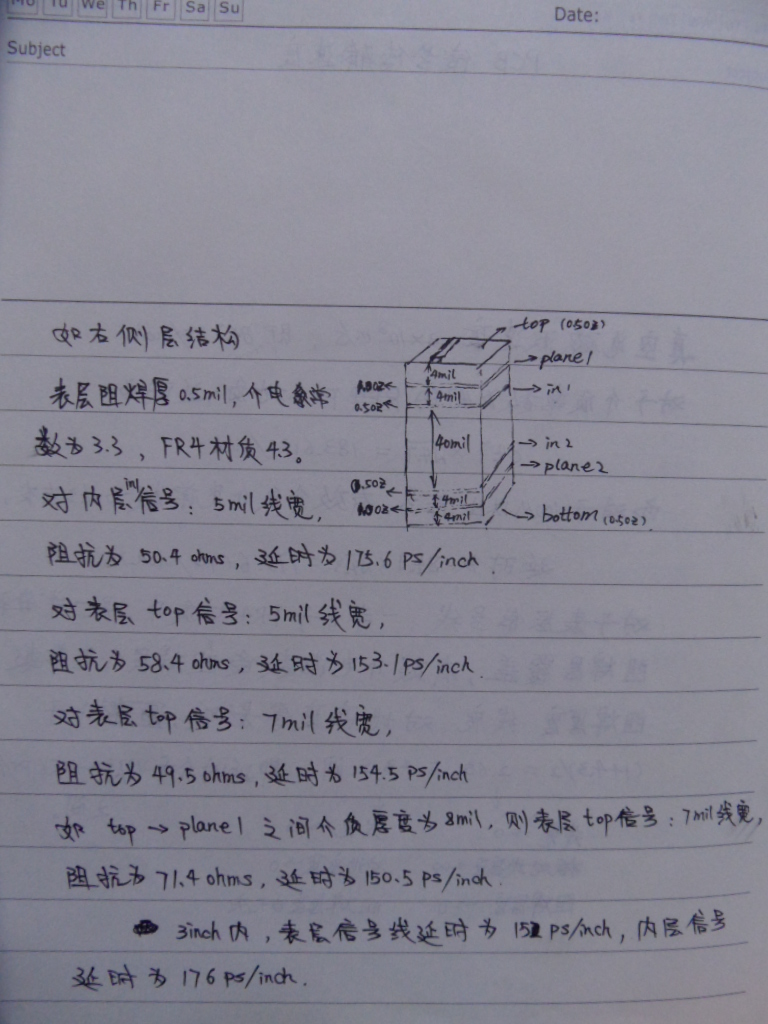 Mo Tu We Th Fr Sa Su
Date:
Subject
如右侧层结构
表层阻焊厚0.5mil,介电常
数为3.3,FR4材质4.3。
对内层in1信号:5mil线宽,
阻抗为50.4 ohms,延时为175.6 ps/inch.
对表层 top信号:5mil线宽,
阻抗为58.4 ohms,延时为153.1ps/inch.
对表层top信号:7mil线宽,
阻抗为49.5 ohms,延时为154.5 ps/inch
如 top→plane1 之间介质厚度为8mil,则表层top信号:7mil线宽,
阻抗为71.4 ohms,延时为150.5 ps/inch.
3inch内,表层信号线延时为152 ps/inch,内层信号
延时为176 ps/inch.
top (0.5OZ)
plane1
in1
in2
plane2
bottom (0.5OZ)
4mil
4mil
0.5OZ
40mil
0.5OZ
4mil
4mil